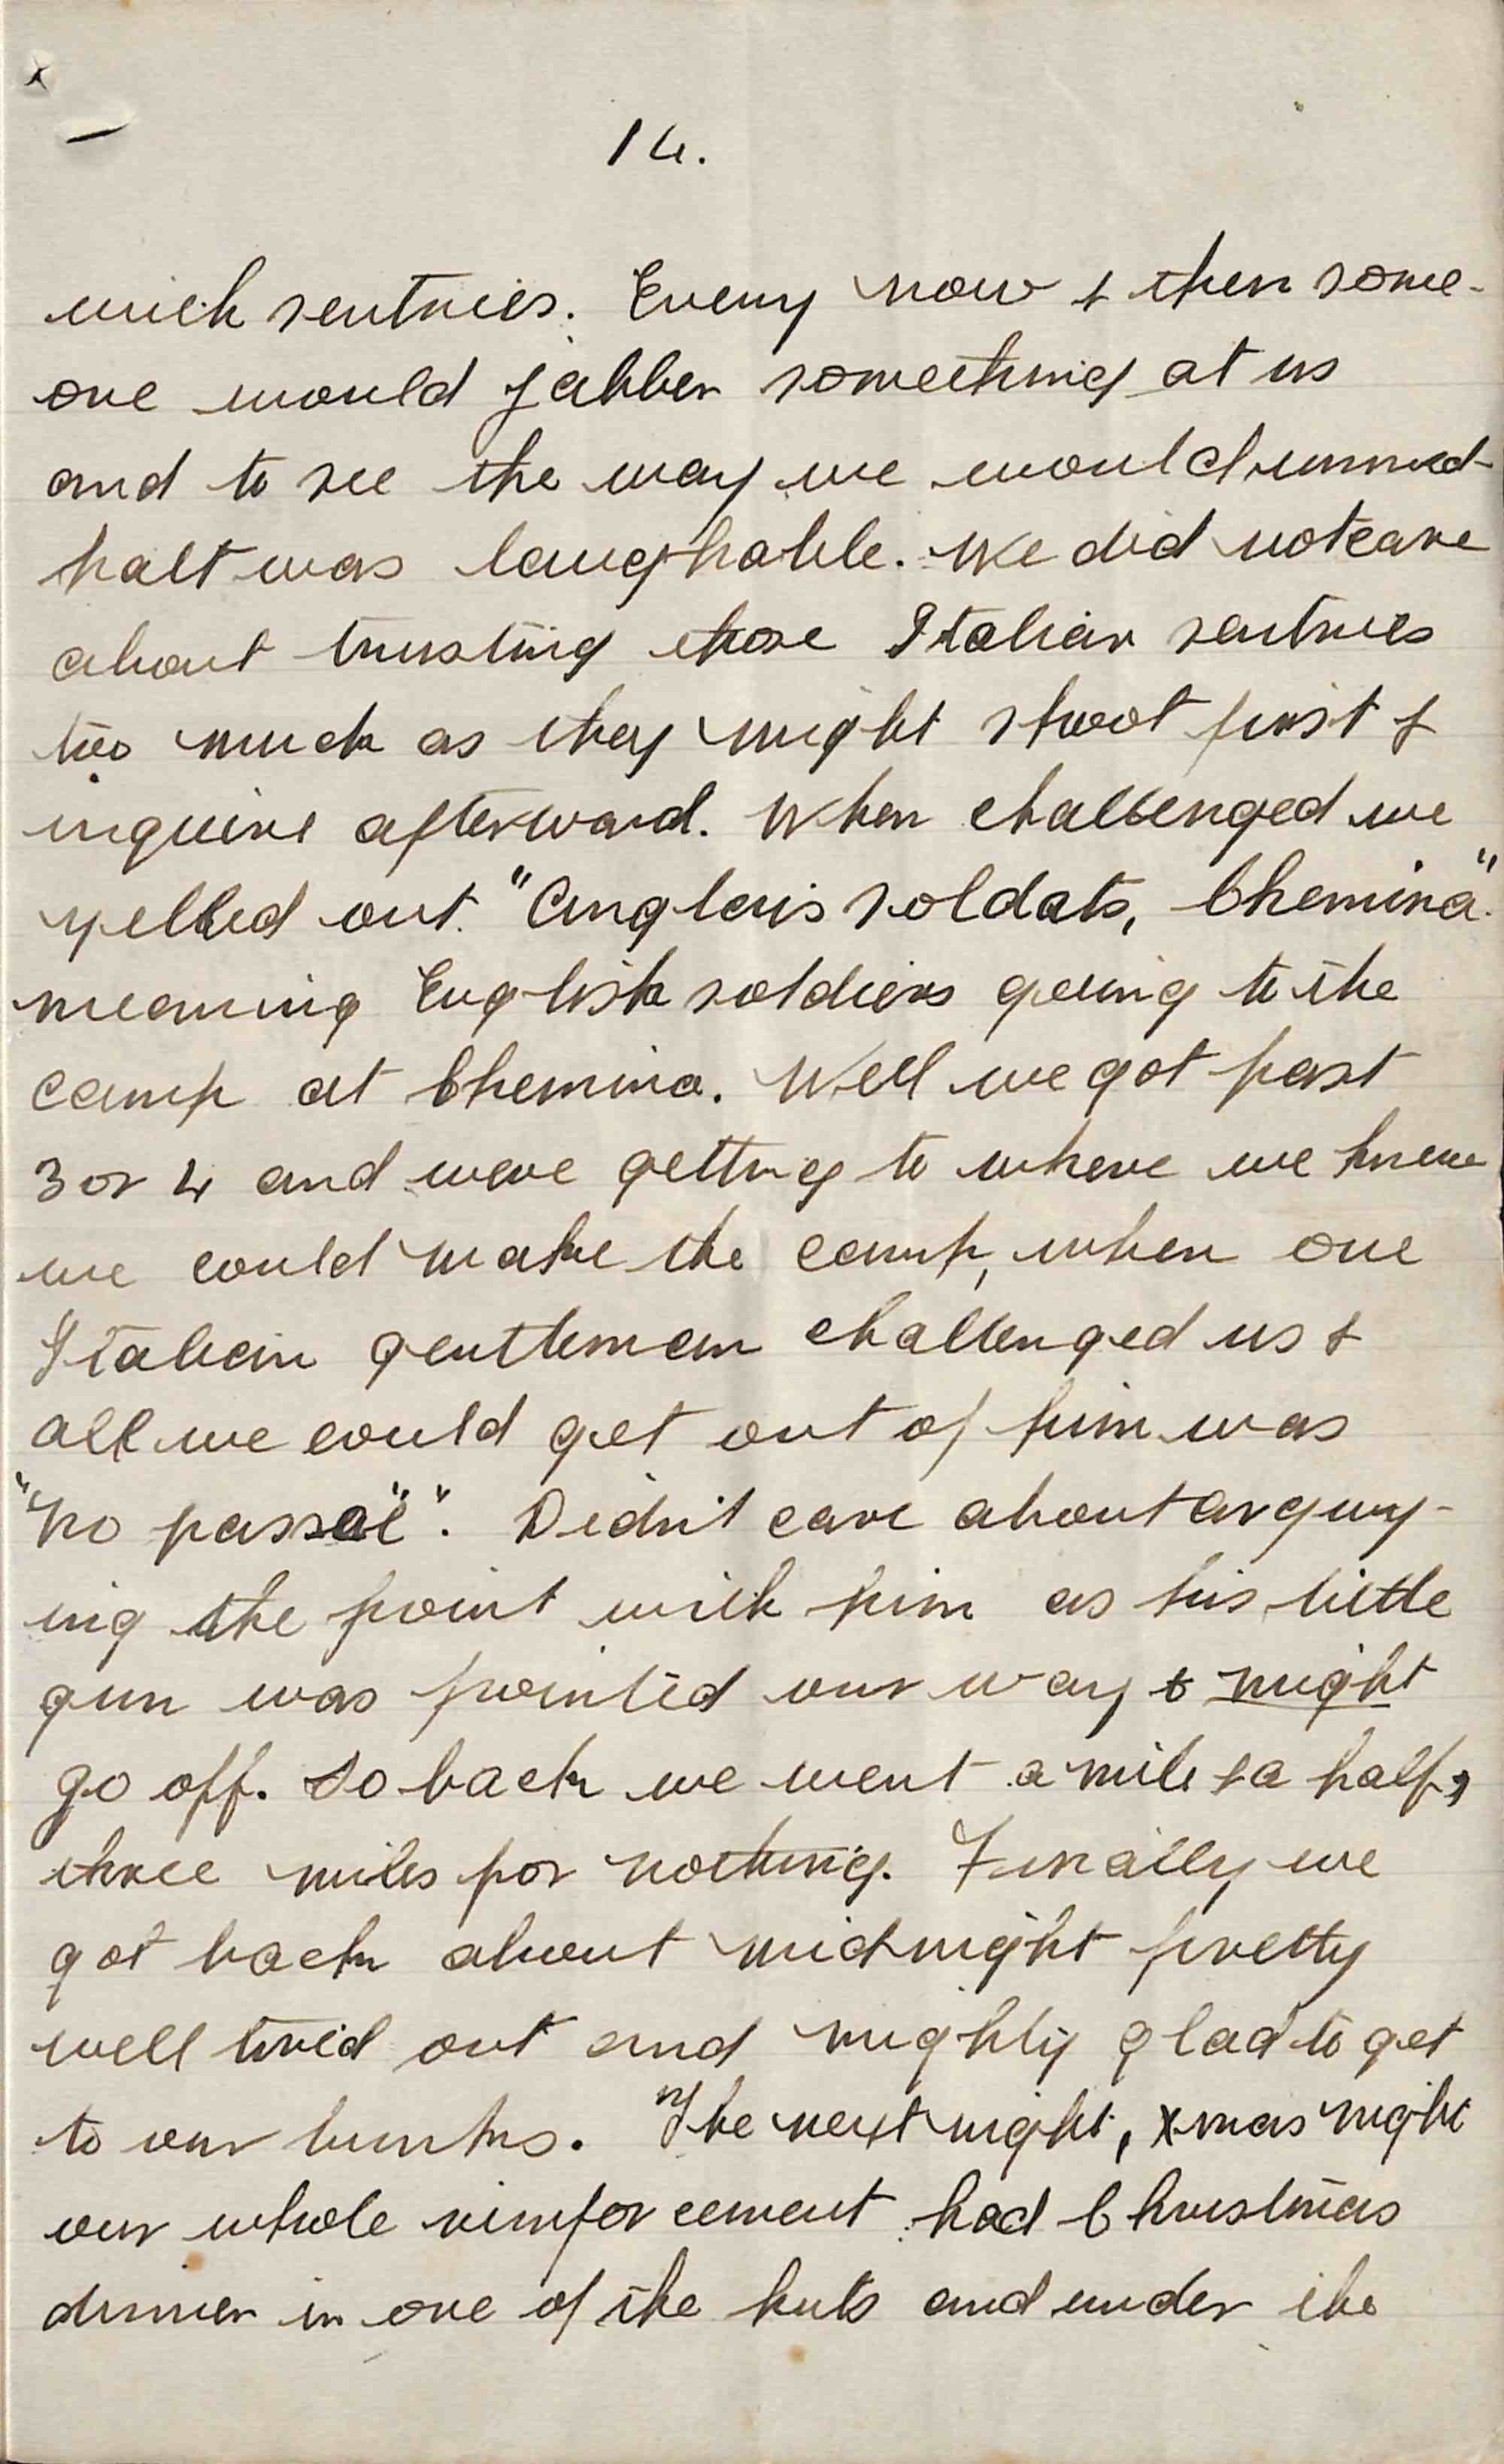 14.
with sentries. Every now & then some-
one would jabber something at us
and to see the way we would
halt was laughable. We did not care
about trusting those Italian sentries
too much as they might shoot first &
inquire afterward. When challenged we
yelled out "Anglais soldats, Chemina".
meaning English soldiers going to the
camp at Chemina. Well we got past
3 or 4 and were getting to where we knew
we could make the camp, when one
Italian gentleman challenged us &
all we could get out of him was
"no passai". Didn't care about arguy-
ing the point with him as his little
gun was pointed our way & might
go off. So back we went a mile & a half,
three miles for nothing. Finally we
got back about midnight pretty
well tired out and mighty glad to get
to our bunks. The next night, Xmas night
our whole reinforcement had Christmas
dinner in one of the huts and under the